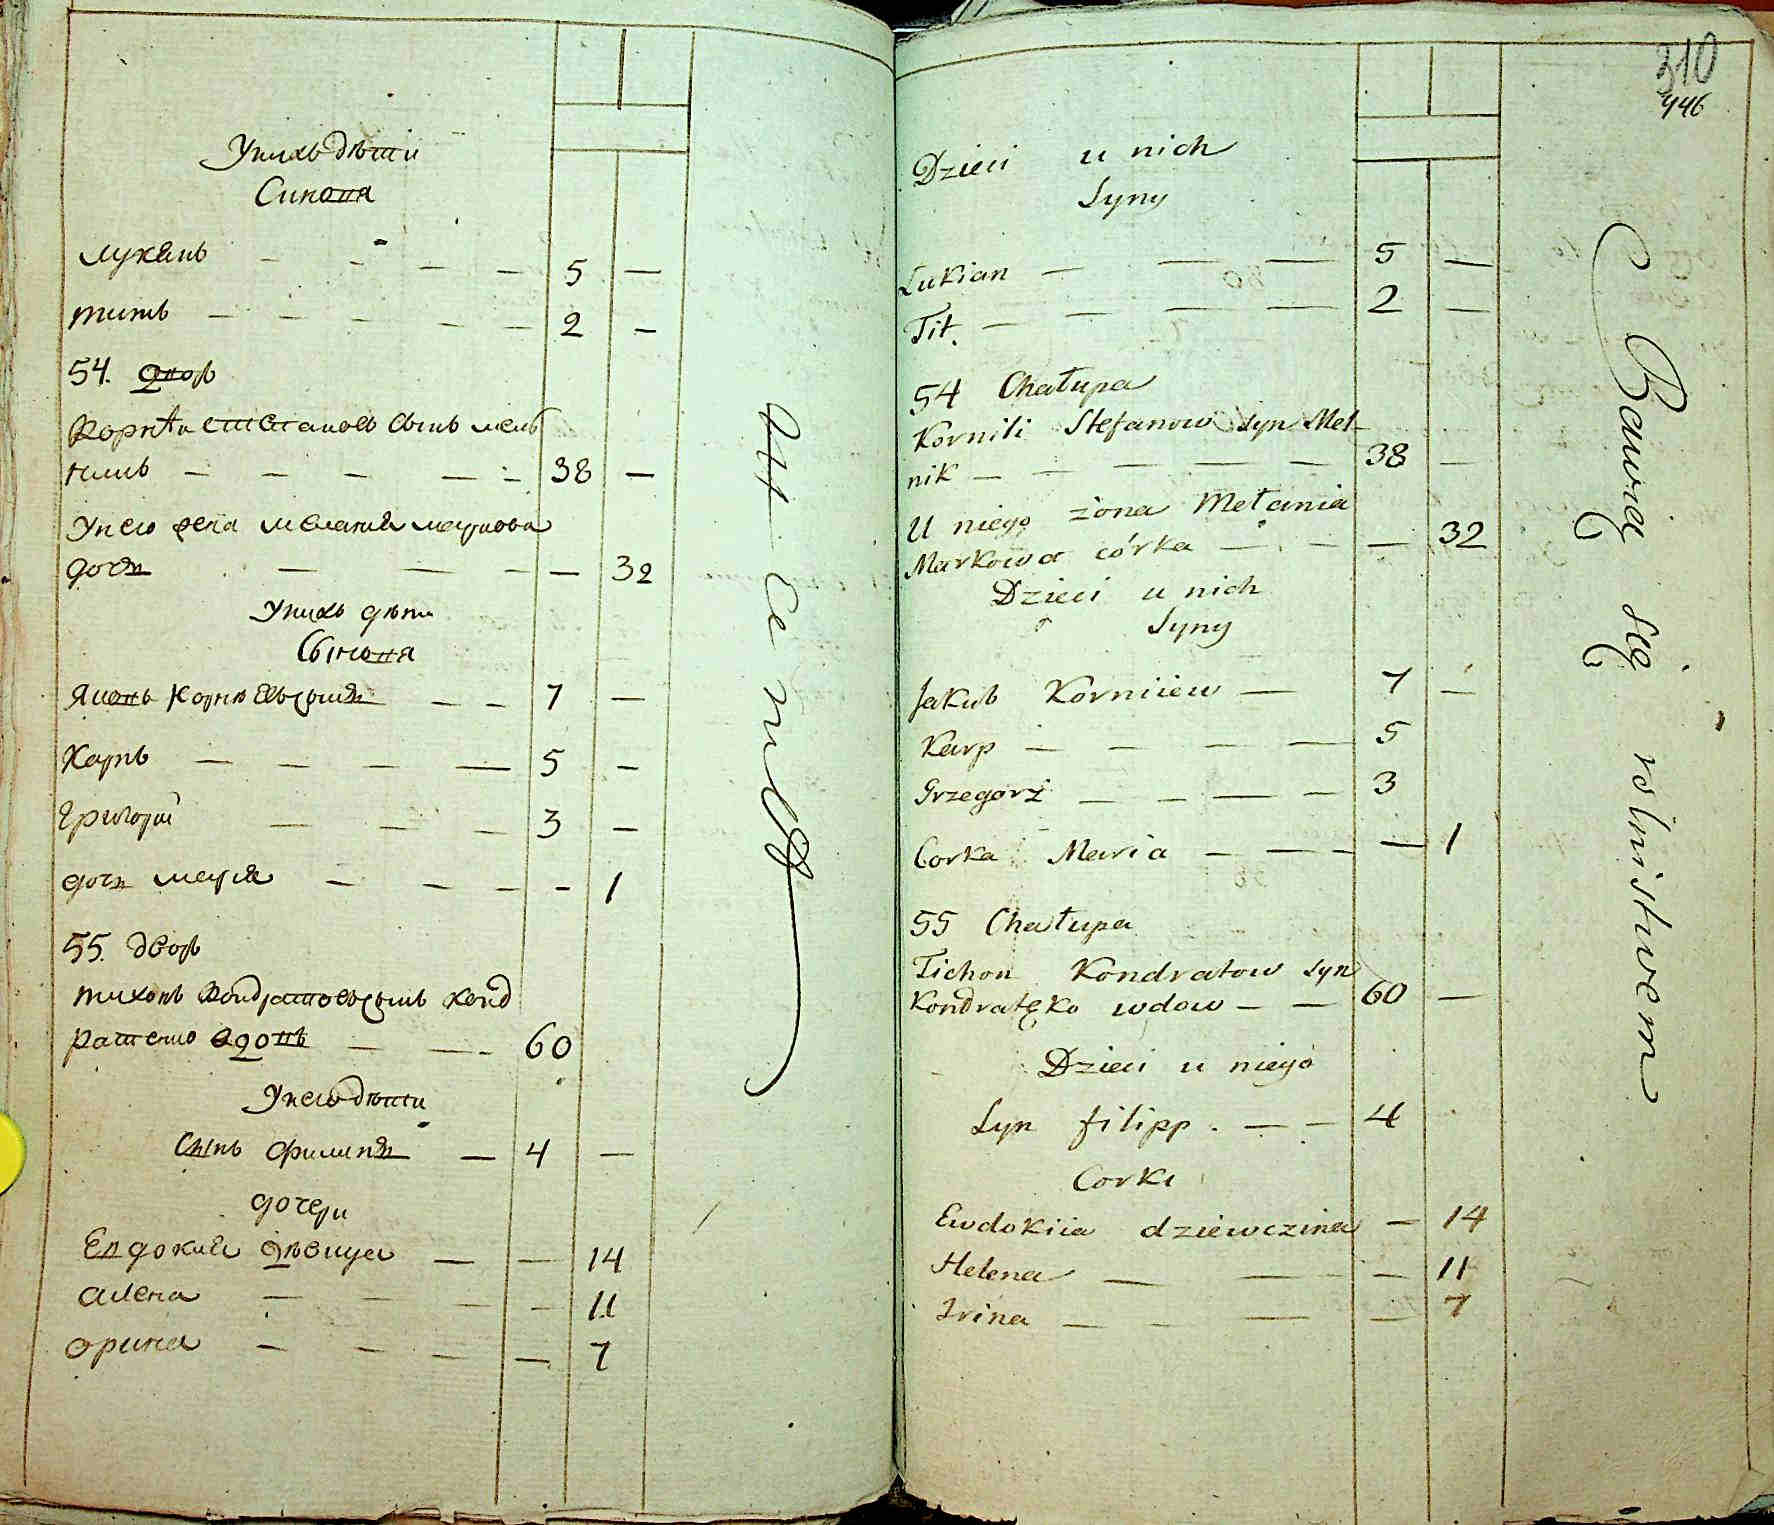 У нихъ дѣти
Синовя
Лукянъ — — — — 5 —
Титъ — — — — — 2 —
54. Дворъ
Корнѣй Стефановъ сынъ мель
никъ — — — — — 38 —
У него жена Мелания Маркова
дочь — — — — 32
У нихъ дѣти
Сыновя
Яковъ Корнѣевъ сынъ — — 7 —
Карпъ — — — — 5 —
Григорий — — — 3 —
дочь Мария — — — — 1
55. дворъ
Тихонъ Кондратовъ сынъ Конд
ратенко вдовъ — — — 60
У него дѣти
Сынъ Филипъ — 4 —
дочери
Евдокия дѣвица — — 14
Алена — — — — 11
Орина — — — — — 7
310
446
Dzieci u nich
Syny
Łukian — — — 5 —
Tit. — — — — 2 —
54 Chałupa
Kornili Stefanow syn Mel-
nik — — — — — 38 —
U niego żona Mełania
Markowa córka — — — 32
Dzieci u nich
Syny
Jakub Korniiew — 7 —
Karp — — — — 5
Grzegorz — — — — 3
Corka Maria — — — — 1
55 Chałupa
Tichon Kondratow syn
Kondratęko wdow — — 60 —
Dzieci u niego
Syn filipp. — — 4
Corki
Ewdokiia dziewczina — 14
Helena — — — 11
Irina — — — — 7
Bawią się rolnistwem